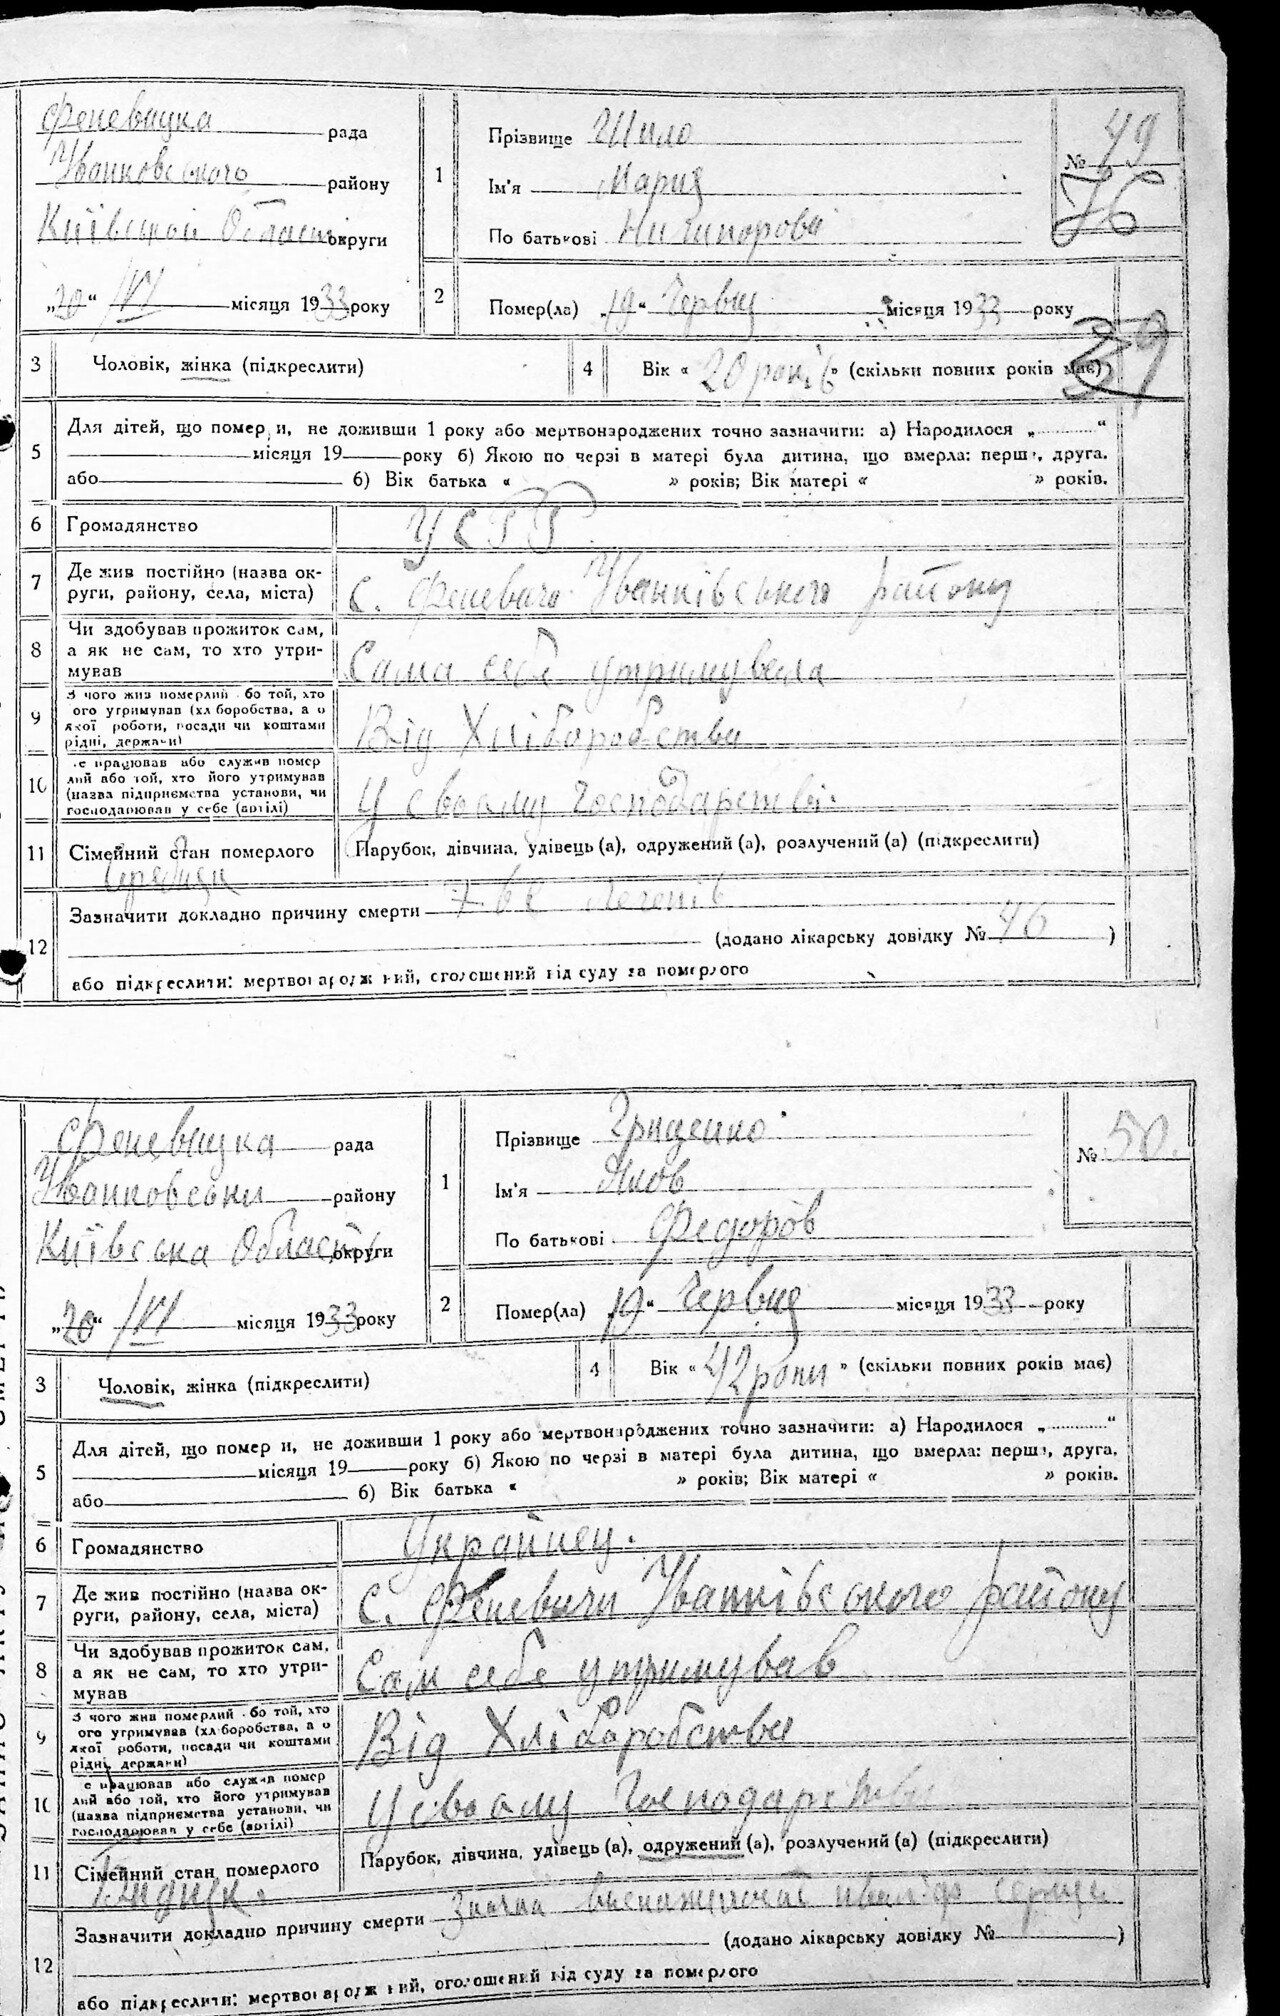 Феневицка рада
Іванковского району
Київской Області округи
„20“ /VI місяця 1933 року
1
Прізвище Шило
Ім'я Мария
По батькові Ничипорова
№ 49
76
2
Помер(ла) „19“ Червця місяця 1933 року
39
3 Чоловік, жінка (підкреслити)
4 Вік « 20 років » (скільки повних років має)
5 Для дітей, що померли, не доживши 1 року або мертвонароджених точно зазначити: а) Народилося „ “
місяця 19 року б) Якою по черзі в матері була дитина, що вмерла: перша, друга.
або б) Вік батька « » років; Вік матері « » років.
6 Громадянство УСРР
7 Де жив постійно (назва ок-
руги, району, села, міста) с. Феневичи Іванківського району
8 Чи здобував прожиток сам,
а як не сам, то хто утри-
мував Сама себе утримувала
9 З чого жив померлий або той, хто
ого утримував (хл боробства, а о
якої роботи, посади чи коштами
рідні, держави) Від Хліборобства
10 е працював або служив помер
лий або той, хто його утримував
(назва підприємства установи, чи
господарював у себе (артілі) У своому господарстві.
11 Сімейний стан померлого Парубок, дівчина, удівець (а), одружений (а), розлучений (а) (підкреслити)
Середняк
12 Зазначити докладно причину смерти легенів
(додано лікарську довідку № 46 )
або підкреслити: мертвонароджений, оголошений від суду за померлого
Феневицка рада
Іванковськи району
Київска Область округи
„20“ /VI місяця 1933 року
1
Прізвище Гриценко
Ім'я Яков
По батькові Федоров
№ 50.
2
Помер(ла) „19“ Червця місяця 1933 року
3 Чоловік, жінка (підкреслити)
4 Вік « 42 роки » (скільки повних років має)
5 Для дітей, що померли, не доживши 1 року або мертвонароджених точно зазначити: а) Народилося „ “
місяця 19 року б) Якою по черзі в матері була дитина, що вмерла: перша, друга.
або б) Вік батька « » років; Вік матері « » років.
6 Громадянство Украйнец.
7 Де жив постійно (назва ок-
руги, району, села, міста) с. Феневичи Іванківського району
8 Чи здобував прожиток сам,
а як не сам, то хто утри-
мував Сам себе утримував
9 З чого жив померлий або той, хто
ого утримував (хл боробства, а о
якої роботи, посади чи коштами
рідні, держави) Від Хліборобства
10 е працював або служив помер
лий або той, хто його утримував
(назва підприємства установи, чи
господарював у себе (артілі) У своому господарстви
11 Сімейний стан померлого Парубок, дівчина, удівець (а), одружений (а), розлучений (а) (підкреслити)
Бидняк.
12 Зазначити докладно причину смерти серця
(додано лікарську довідку № )
або підкреслити: мертвонароджений, оголошений від суду за померлого